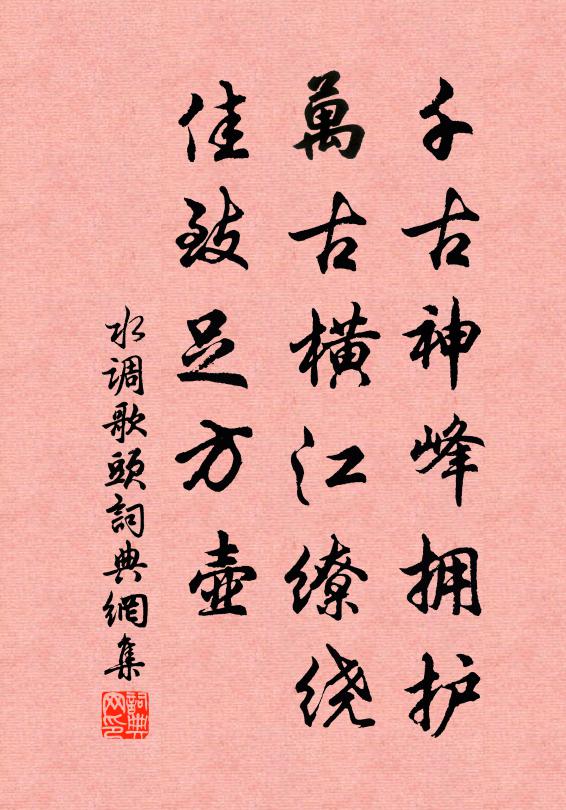 千古神峰拥护
萬古橫江缭绕
佳致足方壺
水调歌頭詞典網集
詞典网印